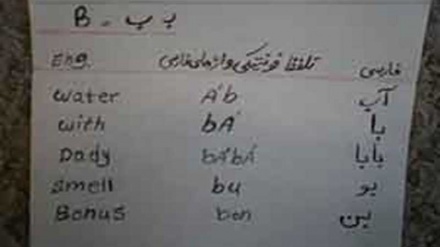 B = ب ب
Eng. تلفظ فونتیکی واژه‌های فارسی فارسی
water A'b آب
with bA' با
Dady bA'bA' بابا
smell bu بو
Bonus bon بن